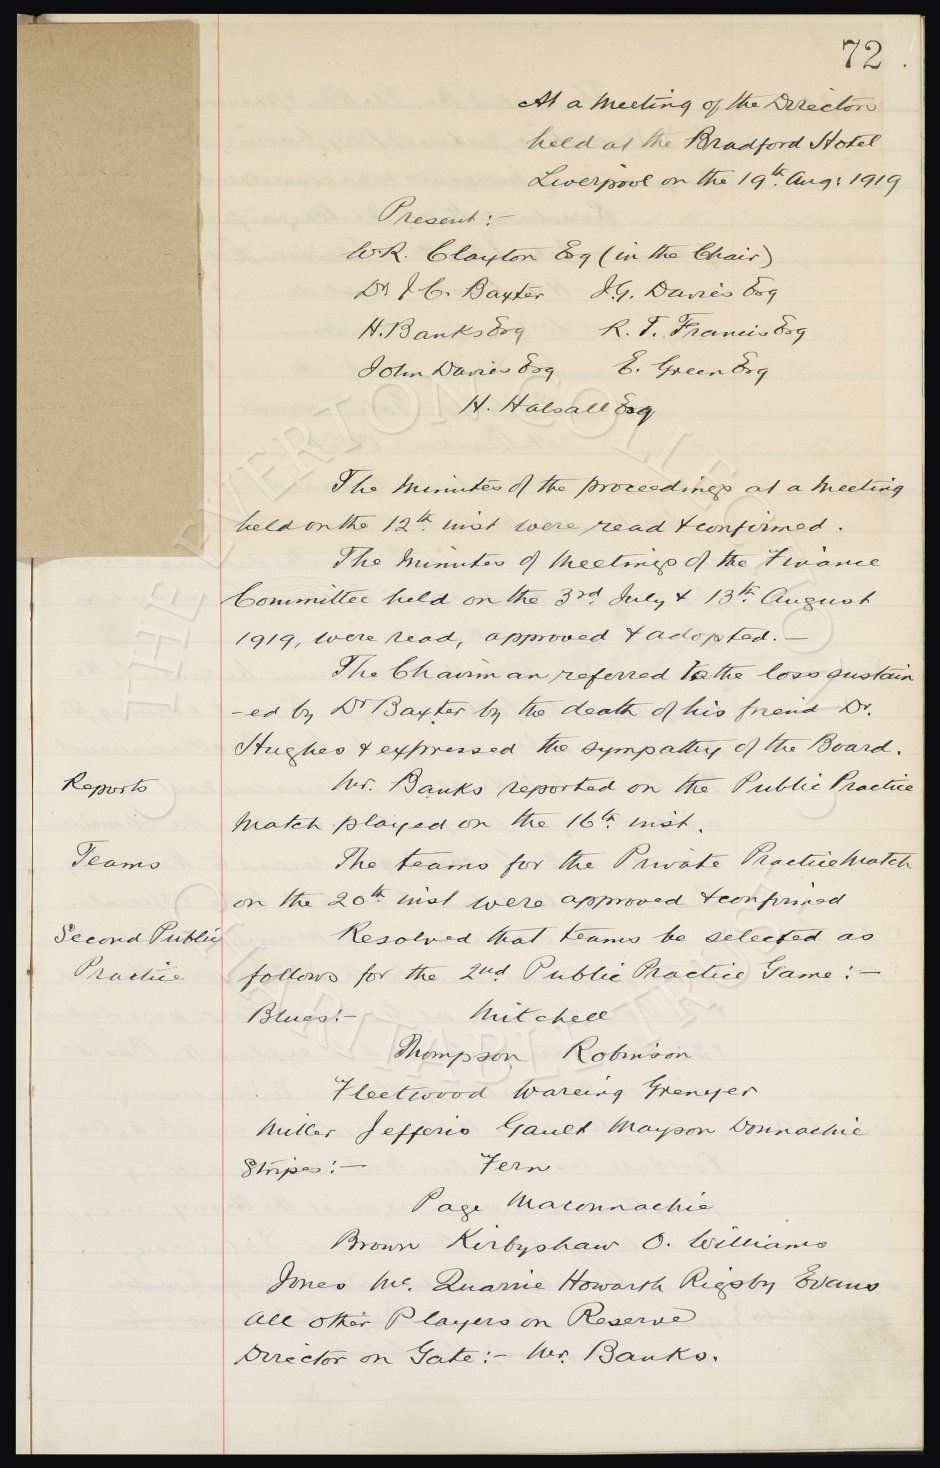 72
At a Meeting of the Directors
held at the Bradford Hotel
Liverpool on the 19th. Aug: 1919
Present:-
W.R. Clayton Esq (in the Chair)
Dr J. C. Baxter J.G. Davies Esq
H. Banks Esq R. T. Francis Esq
John Davies Esq E. Green Esq
H. Halsall Esq
The Minutes of the proceedings at a Meeting
held on the 12th. inst were read & confirmed.
The Minutes of Meetings of the Finance
Committee held on the 3rd. July & 13th. August
1919, were read, approved & adopted.-
The Chairman referred to the loss sustain
-ed by Dr Baxter by the death of his friend Dr.
Hughes & expressed the sympathy of the Board.
Reports Mr. Banks reported on the Public Practice
Match played on the 16th. inst.
Teams The teams for the Private Practice Match
on the 20th. inst were approved & confirmed
Second Public Resolved that teams be selected as
Practice follows for the 2nd. Public Practice Game:-
Blues:- Mitchell
Thompson Robinson
Fleetwood Wareing Grenyer
Miller Jefferis Gault Mayson Donnachie
Stripes:- Fern
Page Maconnachie
Brown Kirbyshaw O. Williams
Jones Mc. Quarrie Howarth Rigsby Evans
All other Players on Reserve
Director on Gate:- Mr. Banks.
THE EVERTON COLLECTION
CHARITABLE TRUST